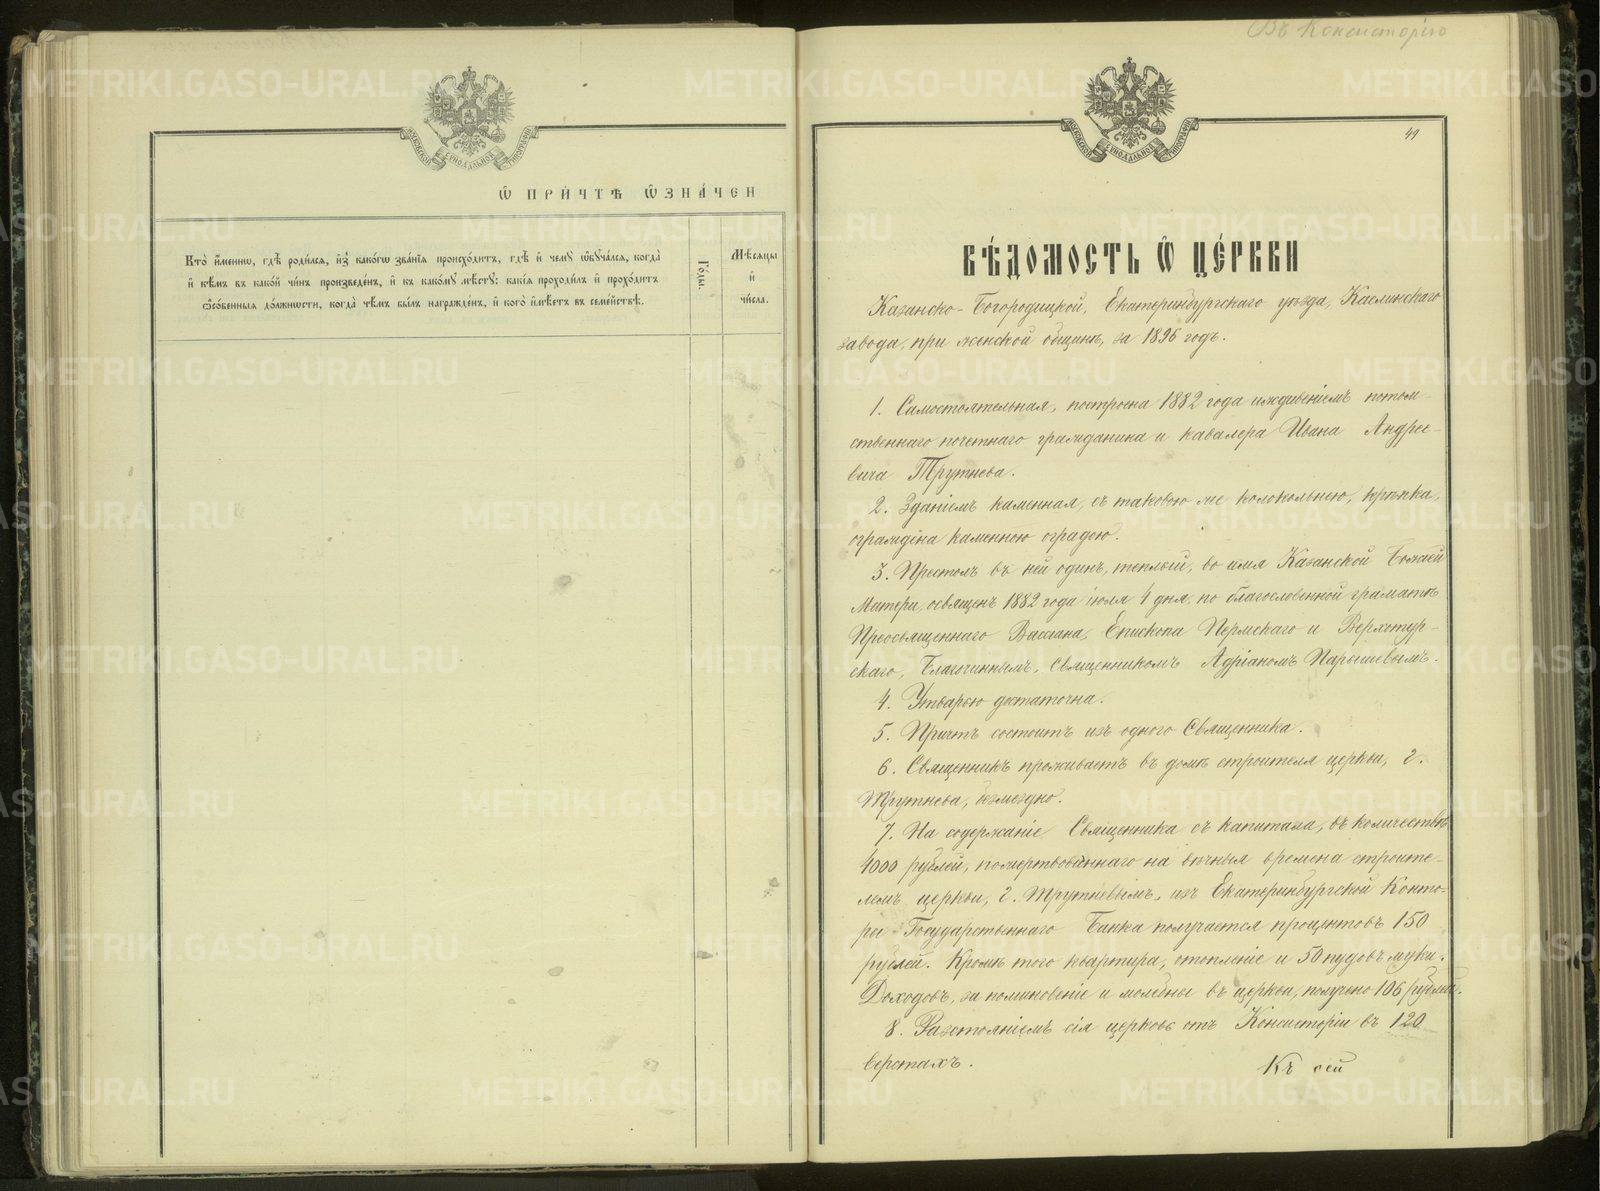 Въ Консисторію
МОСКОВСКОЙ СѴНОДАЛЬНОЙ ТИПОГРАФІИ
Ѡ ПРИ́ЧТѢ Ѡ҆ЗНА́ЧЕН
Кто̀ и҆́меннѡ, гдѣ̀ роди́лсѧ, и҆з̾ како́гѡ зва́нїѧ происхо́дитъ, гдѣ̀ и҆ чемꙋ̀ ѡ҆бꙋча́лсѧ, когда̀
и҆ кѣ́мъ въ како́й чи́нъ произведе́нъ, и҆ къ како́мꙋ мѣ́стꙋ: какі̑ѧ проходи́лъ и҆ прохо́дитъ
ѡ҆со́бенныѧ до́лжности, когда̀ тѣ́мъ бы́лъ награжде́нъ, и҆ кого̀ и҆мѣ́етъ въ семе́йствѣ.
Го́ды.
Мѣ́сяцы
и҆
чи́сла.
МОСКОВСКОЙ СѴНОДАЛЬНОЙ ТИПОГРАФІИ
49
ВѢ́ДОМОСТЬ Ѡ ЦЕ́РКВИ
Казанско-Богородицкой, Екатеринбургскаго уѣзда, Каслинскаго
завода, при женской общинѣ, за 1896 годъ.
1. Самостоятельная, построена 1882 года иждивеніемъ потом-
ственнаго почетнаго гражданина и кавалера Ивана Андрее-
вича Трутнева.
2. Зданіемъ каменная, съ таковою же колокольнею, крѣпка,
ограждена каменною оградою.
3. Престолъ въ ней одинъ, теплый, во имя Казанской Божіей
Матери, освященъ 1882 года іюля 4 дня, по благословенной граматѣ
Преосвященнаго Вассіана, Епископа Пермскаго и Верхотур-
скаго, Благочиннымъ, Священникомъ Адріаномъ Парышевымъ.
4. Утварью достаточна.
5. Причтъ состоитъ изъ одного Священника.
6. Священникъ проживаетъ въ домѣ строителя церкви, г.
Трутнева, безмездно.
7. На содержаніе Священника съ капитала, въ количествѣ
4000 рублей, пожертвованнаго на вѣчныя времена строите-
лемъ церкви, г. Трутневымъ, изъ Екатеринбургской Конто-
ры Государственнаго Банка получается процентовъ 150
рублей. Кромѣ того квартира, отопленіе и 50 пудовъ муки.
Доходовъ, за поминовеніе и молебны въ церкви, получено 106 рублей.
8. Разстояніемъ сія церковь отъ Консисторіи въ 120
верстахъ.
Къ сей